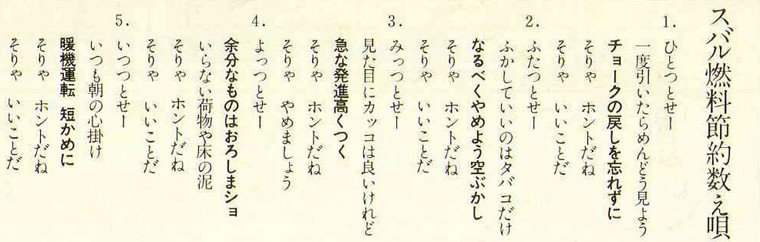 スバル燃料節約数え唄
1.
ひとつとせー
一度引いたらめんどう見よう
チョークの戻しを忘れずに
そりゃ ホントだね
そりゃ いいことだ
2.
ふたつとせー
ふかしていいのはタバコだけ
なるべくやめよう空ぶかし
そりゃ ホントだね
そりゃ いいことだ
3.
みっつとせー
見た目にカッコは良いけれど
急な発進高くつく
そりゃ ホントだね
そりゃ やめましょう
4.
よっつとせー
余分なものはおろしまショ
いらない荷物や床の泥
そりゃ ホントだね
そりゃ いいことだ
5.
いつつとせー
いつも朝の心掛け
暖機運転 短かめに
そりゃ ホントだね
そりゃ いいことだ